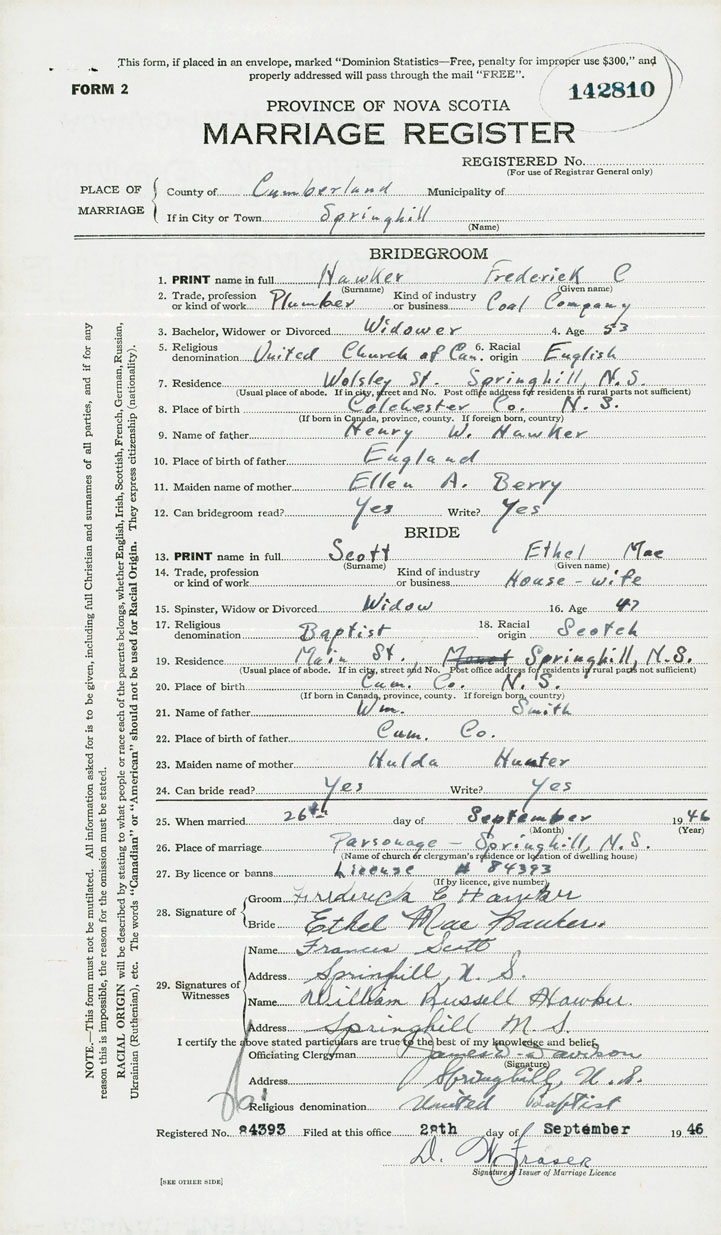 This form, if placed in an envelope, marked "Dominion Statistics—Free, penalty for improper use $300," and
properly addressed will pass through the mail "FREE".
FORM 2
142810
PROVINCE OF NOVA SCOTIA
MARRIAGE REGISTER
REGISTERED No.
(For use of Registrar General only)
PLACE OF MARRIAGE
County of Cumberland Municipality of
If in City or Town Springhill
(Name)
BRIDEGROOM
1. PRINT name in full Hawker Frederick C
(Surname) (Given name)
2. Trade, profession or kind of work Plumber Kind of industry or business Coal Company
3. Bachelor, Widower or Divorced Widower 4. Age 53
5. Religious denomination United Church of Can. 6. Racial origin English
7. Residence Wolsley St. Springhill, N.S.
(Usual place of abode. If in city, street and No. Post office address for residents in rural parts not sufficient)
8. Place of birth Colchester Co. N.S.
(If born in Canada, province, county. If foreign born, country)
9. Name of father Henry W. Hawker
10. Place of birth of father England
11. Maiden name of mother Ellen A. Berry
12. Can bridegroom read? Yes Write? Yes
BRIDE
13. PRINT name in full Scott Ethel Mae
(Surname) (Given name)
14. Trade, profession or kind of work Kind of industry or business House-wife
15. Spinster, Widow or Divorced Widow 16. Age 47
17. Religious denomination Baptist 18. Racial origin Scotch
19. Residence Main St., Springhill, N.S.
(Usual place of abode. If in city, street and No. Post office address for residents in rural parts not sufficient)
20. Place of birth Cum. Co. N.S.
(If born in Canada, province, county. If foreign born, country)
21. Name of father Wm. Smith
22. Place of birth of father Cum. Co.
23. Maiden name of mother Hulda Hunter
24. Can bride read? Yes Write? Yes
25. When married 26th day of September 1946
(Month) (Year)
26. Place of marriage Parsonage - Springhill, N.S.
(Name of church or clergyman's residence or location of dwelling house)
27. By licence or banns License # 84393
(If by licence, give number)
28. Signature of
Groom Frederick C Hawker
Bride Ethel Mae Hawker.
29. Signatures of Witnesses
Name Frances Scott
Address Springhill, N.S.
Name William Russell Hawker.
Address Springhill N.S.
I certify the above stated particulars are true to the best of my knowledge and belief,
Officiating Clergyman James D. Davison
(Signature)
Address Springhill, N.S.
Religious denomination United Baptist
Registered No. 84393 Filed at this office 28th day of September 1946
D. W. Fraser
Signature of Issuer of Marriage Licence
[SEE OTHER SIDE]
NOTE.—This form must not be mutilated. All information asked for is to be given, including full Christian and surnames of all parties, and if for any
reason this is impossible, the reason for the omission must be stated.
RACIAL ORIGIN will be described by stating to what people or race each of the parents belongs, whether English, Irish, Scottish, French, German, Russian,
Ukrainian (Ruthenian), etc. The words "Canadian" or "American" should not be used for Racial Origin. They express citizenship (nationality).